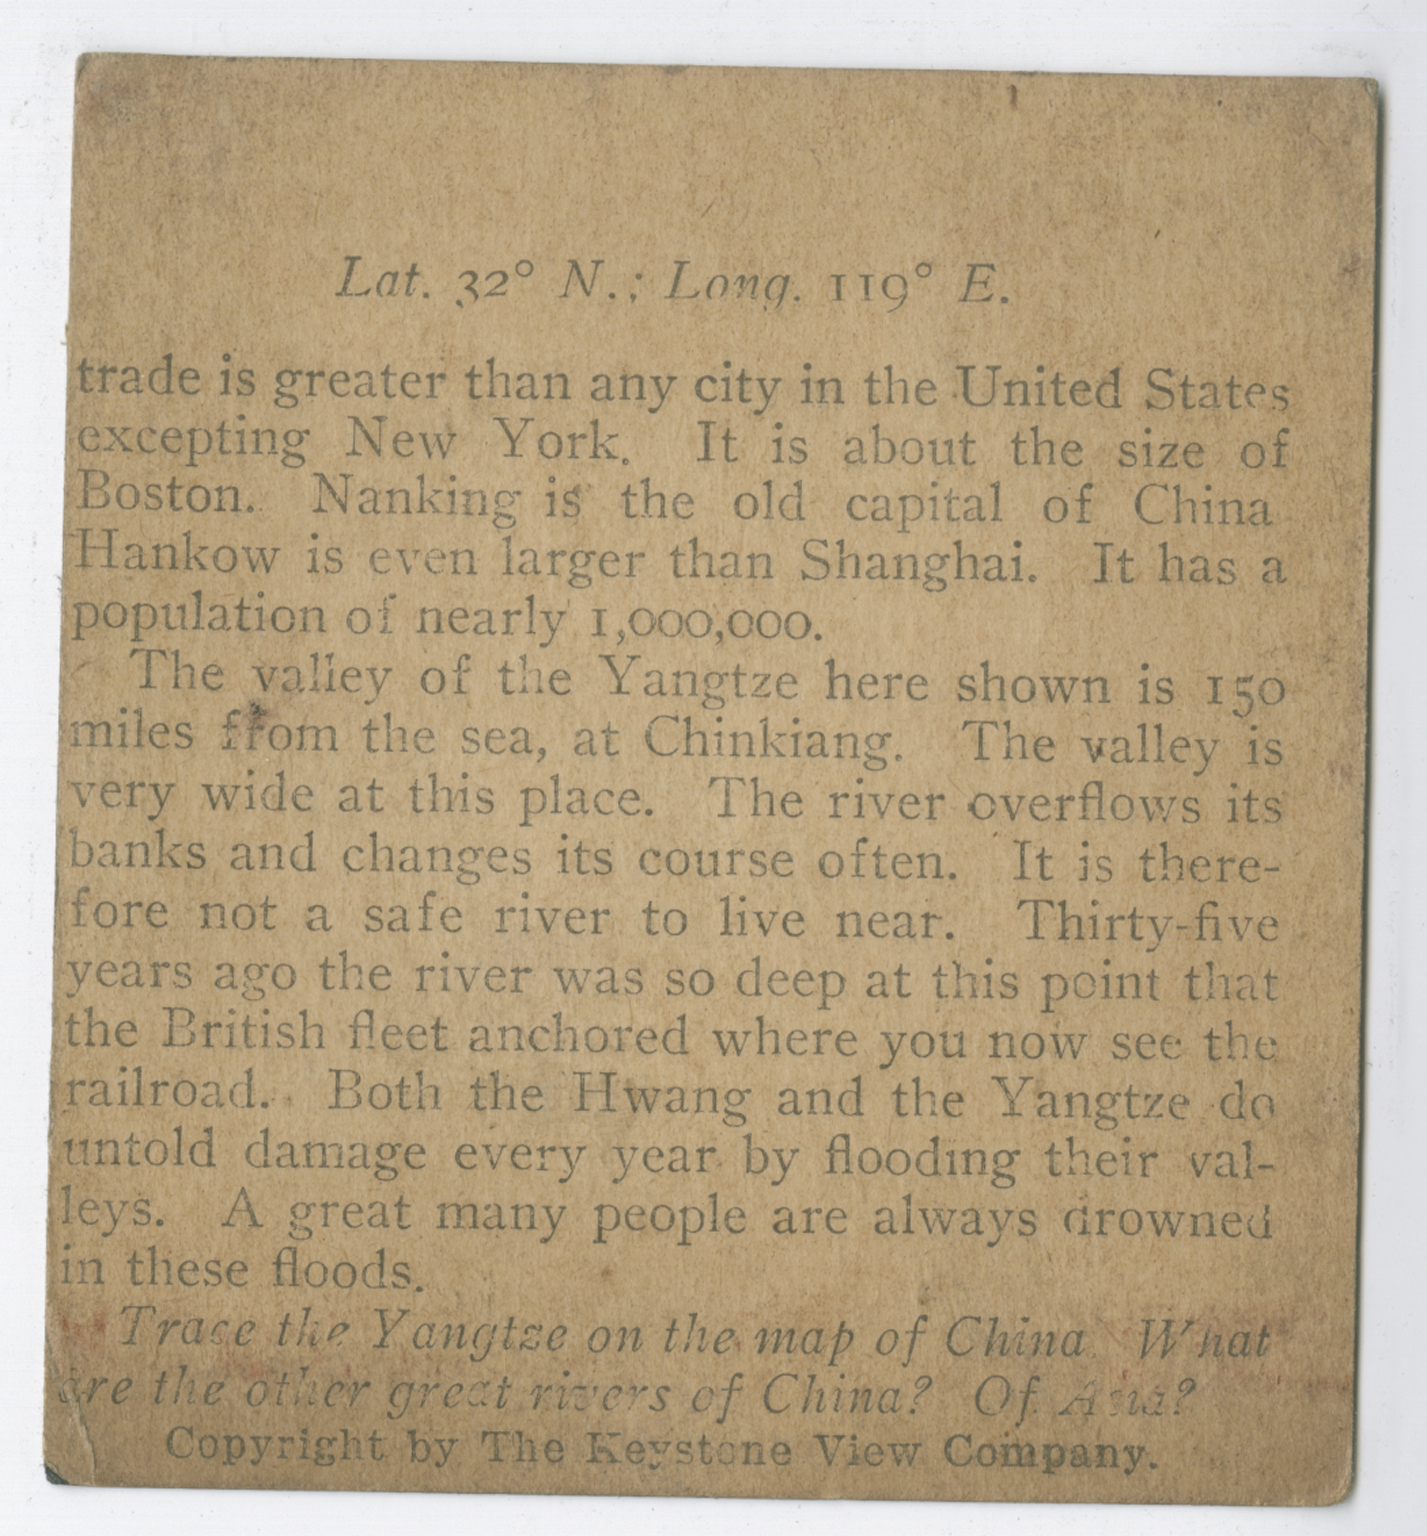 Lat. 32° N.; Long. 119° E.
trade is greater than any city in the United States
excepting New York. It is about the size of
Boston. Nanking is the old capital of China
Hankow is even larger than Shanghai. It has a
population of nearly 1,000,000.
The valley of the Yangtze here shown is 150
miles from the sea, at Chinkiang. The valley is
very wide at this place. The river overflows its
banks and changes its course often. It is there-
fore not a safe river to live near. Thirty-five
years ago the river was so deep at this point that
the British fleet anchored where you now see the
railroad. Both the Hwang and the Yangtze do
untold damage every year by flooding their val-
leys. A great many people are always drowned
in these floods.
Trace the Yangtze on the map of China. What
are the other great rivers of China? Of Asia?
Copyright by The Keystone View Company.